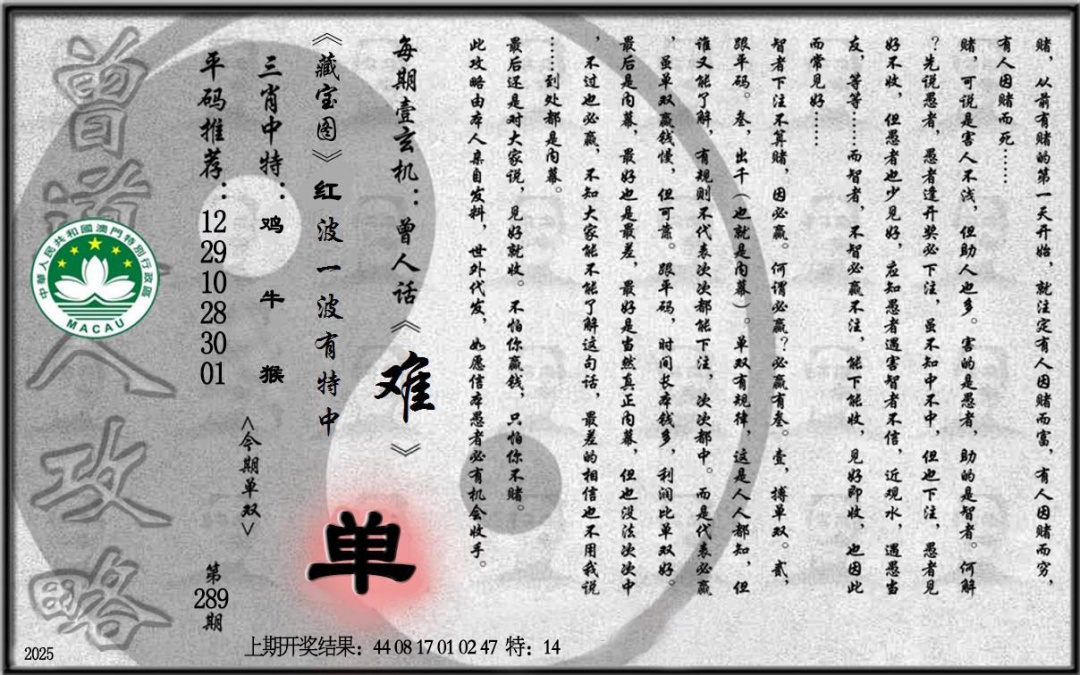 赌，从前有赌的第一天开始，就注定有人因赌而富，有人因赌而穷，
有人因赌而死……
赌，可说是害人不浅，但助人也多。害的是愚者，助的是智者。何解
？先说愚者，愚者逢开奖必下注，虽不知中不中，但也下注，愚者见
好不收，但愚者也少见好，应知愚者遇害智者不信，近观水，遇愚当
友，等等……而智者，不智必赢不注，能下能收，见好即收，也因此
而常见好……
智者下注不算赌，因必赢。何谓必赢？必赢有叁。壹，搏单双。贰，
跟单码。叁，出千（也就是内幕）。单双有规律，这是人人都知，但
谁又能了解，有规则不代表次次都能下注，次次都中。而是代表必赢
，虽单双赢钱慢，但可靠。跟单码，时间长本钱多，利润比单双好。
最后是内幕，最好也是最差，最好是当然真正内幕，但也没法次次中
，不过也必赢，不知大家能不能了解这句话，最差的相信也不用我说
……到处都是内幕。
最后还是对大家说，见好就收。不怕你赢钱，只怕你不赌。
此攻略由本人亲自发料，世外代发，如愿信本愚者必有机会收手。
每期壹玄机：曾人话《难》
《藏宝图》红波一波有特中
单
三肖中特：鸡 牛 猴
<今期单双>
平码推荐：12 29 10 28 30 01
第289期
曾道人攻略
中華人民共和國澳門特別行政區
MACAU
上期开奖结果：44 08 17 01 02 47 特：14
2025